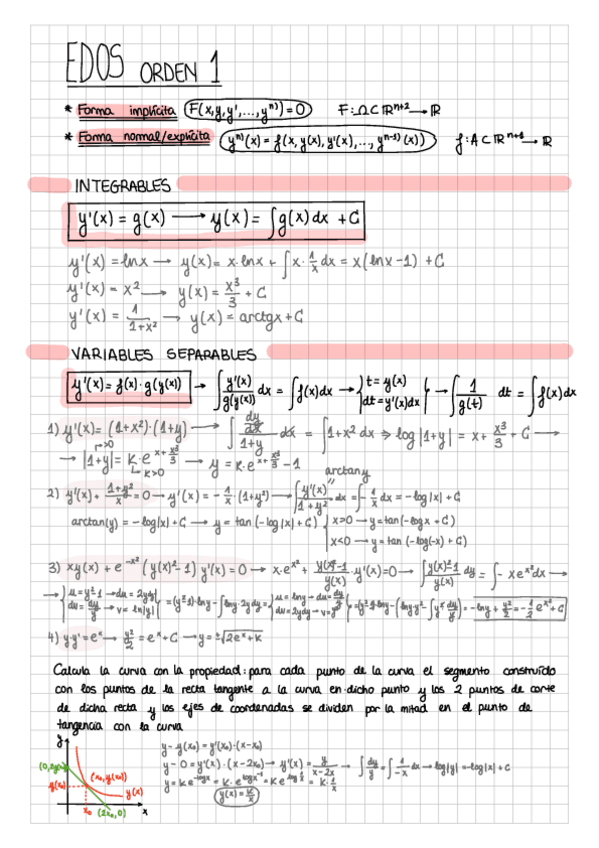 EDOS ORDEN 1
* Forma implícita F(x,y,y',...,yⁿ⁾)=0 F:Ω⊂ℝⁿ⁺²→ℝ
* Forma normal/explícita yⁿ⁾(x) = f(x, y(x), y'(x),..., yⁿ⁻¹⁾(x)) f:A⊂ℝⁿ⁺¹→ℝ
INTEGRABLES
y'(x) = g(x) → y(x) = ∫g(x)dx + C
y'(x) = lnx → y(x) = x·lnx + ∫x·1/x dx = x(lnx-1) + C
y'(x) = x² → y(x) = x³/3 + C
y'(x) = 1/(1+x²) → y(x) = arctgx + C
VARIABLES SEPARABLES
y'(x) = f(x)·g(y(x)) → ∫y'(x)/g(y(x)) dx = ∫f(x)dx → {t = y(x) dt = y'(x)dx} → ∫1/g(t) dt = ∫f(x)dx
1) y'(x) = (1+x²)·(1+y) → ∫ dy/dx/(1+y) dx = ∫1+x² dx ⇒ log|1+y| = x + x³/3 + C →
→ |1+y| = K·e^(x+x³/3) → y = K·e^(x+x³/3) - 1
K>0
arctan y
2) y'(x) + (1+y²)/x = 0 → y'(x) = -1/x·(1+y²) → ∫y'(x)/(1+y²) dx = ∫-1/x dx = -log|x| + C
arctan(y) = -log|x| + C → y = tan(-log|x| + C) {x>0 → y = tan(-logx + C)
x<0 → y = tan(-log(-x) + C)
3) xy(x) + e^(-x²)(y(x)²-1) y'(x) = 0 → x·e^(x²) + (y(x)²-1)/y(x)·y'(x) = 0 → ∫(y(x)²-1)/y(x) dy = ∫-xe^(x²)dx →
4) y·y' = eˣ → y²/2 = eˣ + C → y = ±√(2eˣ + K)
Calcula la curva con la propiedad: para cada punto de la curva el segmento construido
con los puntos de la recta tangente a la curva en dicho punto y los 2 puntos de corte
de dicha recta y los ejes de coordenadas se dividen por la mitad en el punto de
tangencia con la curva
y - y(x₀) = y'(x₀)·(x-x₀)
y - 0 = y'(x)·(x-2x₀) → y'(x) = y/(x-2x) → ∫dy/y = ∫1/-x dx → log|y| = -log|x| + C
y = K·e^(-logx) = K·e^(logx⁻¹) = K·e^(log 1/x) = K·1/x
y(x) = K/x
y
(x₀, y(x₀))
y(x₀)
y(x)
x₀
(2x₀, 0)
x